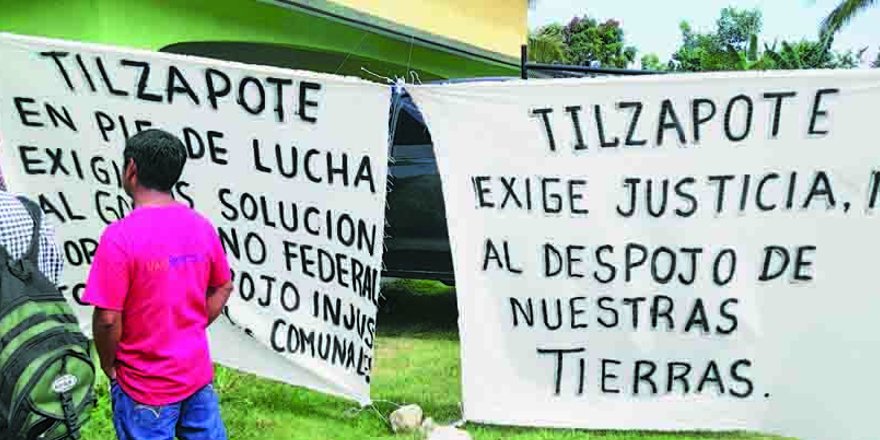 TILZAPOTE
EN PIE DE LUCHA
EXIGI SOLUCION
AL GO NO FEDERAL
OJO INJUS
COMUNALE
TILZAPOTE
EXIGE JUSTICIA,
AL DESPOJO DE
NUESTRAS
TIERRAS.